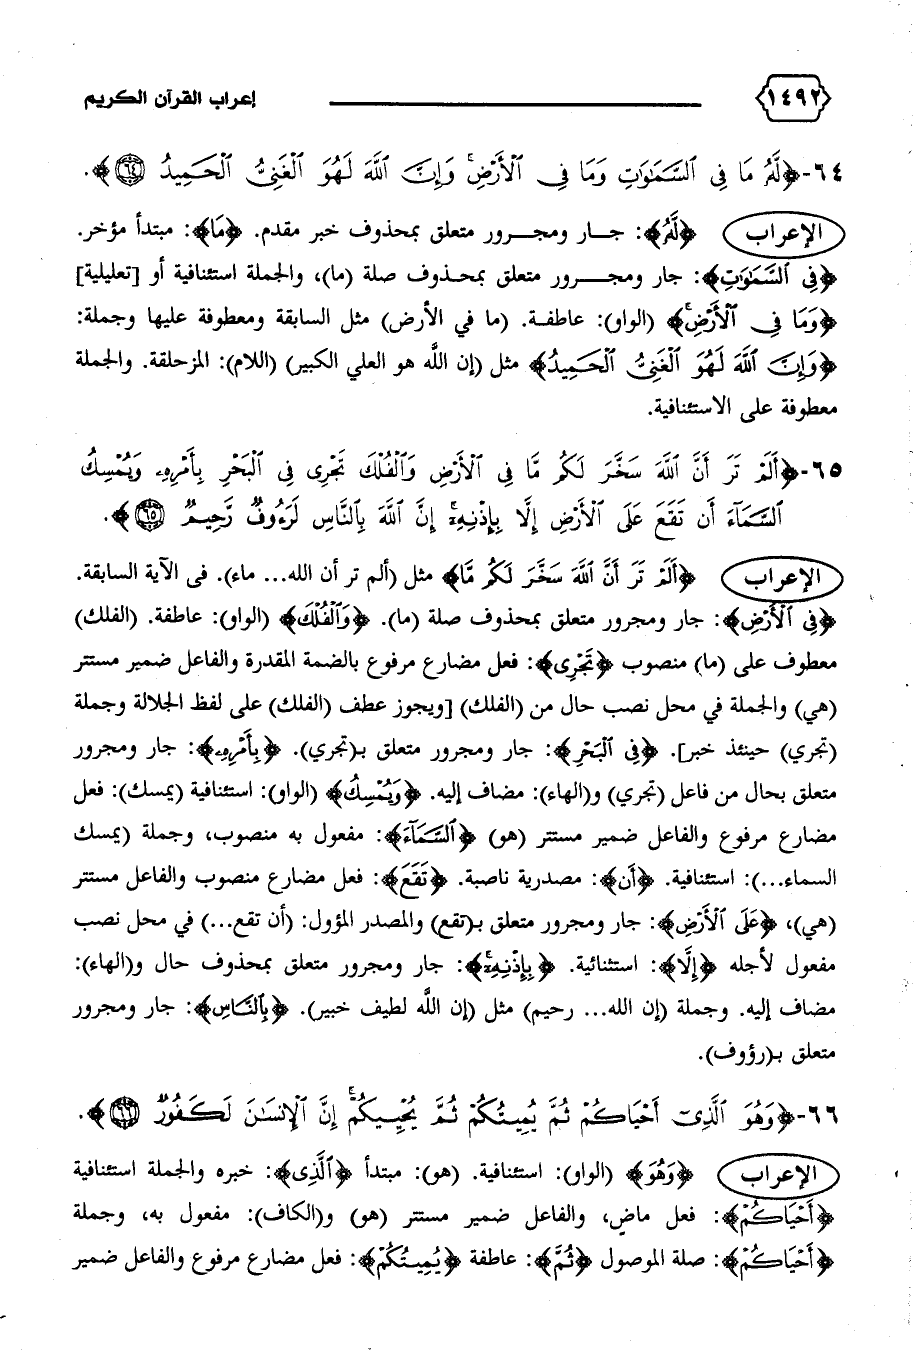 ١٤٩٢ إعراب القرآن الكريم
٦٤-﴿لَّهُ مَا فِى ٱلسَّمَٰوَٰتِ وَمَا فِى ٱلْأَرْضِ ۗ وَإِنَّ ٱللَّهَ لَهُوَ ٱلْغَنِىُّ ٱلْحَمِيدُ ٦٤﴾.
الإعراب ﴿لَّهُ﴾: جار ومجرور متعلق بمحذوف خبر مقدم. ﴿مَا﴾: مبتدأ مؤخر.
﴿فِى ٱلسَّمَٰوَٰتِ﴾: جار ومجرور متعلق بمحذوف صلة (ما)، والجملة استئنافية أو [تعليلية]
﴿وَمَا فِى ٱلْأَرْضِ ۗ﴾ (الواو): عاطفة. (ما في الأرض) مثل السابقة ومعطوفة عليها وجملة:
﴿وَإِنَّ ٱللَّهَ لَهُوَ ٱلْغَنِىُّ ٱلْحَمِيدُ﴾ مثل (إن الله هو العلي الكبير) (اللام): المزحلقة. والجملة
معطوفة على الاستئنافية.
٦٥-﴿أَلَمْ تَرَ أَنَّ ٱللَّهَ سَخَّرَ لَكُم مَّا فِى ٱلْأَرْضِ وَٱلْفُلْكَ تَجْرِى فِى ٱلْبَحْرِ بِأَمْرِهِۦ وَيُمْسِكُ
ٱلسَّمَآءَ أَن تَقَعَ عَلَى ٱلْأَرْضِ إِلَّا بِإِذْنِهِۦٓ ۗ إِنَّ ٱللَّهَ بِٱلنَّاسِ لَرَءُوفٌ رَّحِيمٌ ٦٥﴾.
الإعراب ﴿أَلَمْ تَرَ أَنَّ ٱللَّهَ سَخَّرَ لَكُم مَّا﴾ مثل (ألم تر أن الله... ماء). فى الآية السابقة.
﴿فِى ٱلْأَرْضِ﴾: جار ومجرور متعلق بمحذوف صلة (ما). ﴿وَٱلْفُلْكَ﴾ (الواو): عاطفة. (الفلك)
معطوف على (ما) منصوب ﴿تَجْرِى﴾: فعل مضارع مرفوع بالضمة المقدرة والفاعل ضمير مستتر
(هي) والجملة في محل نصب حال من (الفلك) [ويجوز عطف (الفلك) على لفظ الجلالة وجملة
(تجري) حينئذ خبر]. ﴿فِى ٱلْبَحْرِ﴾: جار ومجرور متعلق بـ(تجري). ﴿بِأَمْرِهِۦ﴾: جار ومجرور
متعلق بحال من فاعل (تجري) و(الهاء): مضاف إليه. ﴿وَيُمْسِكُ﴾ (الواو): استئنافية (يمسك): فعل
مضارع مرفوع والفاعل ضمير مستتر (هو) ﴿ٱلسَّمَآءَ﴾: مفعول به منصوب، وجملة (يمسك
السماء...): استئنافية. ﴿أَن﴾: مصدرية ناصبة. ﴿تَقَعَ﴾: فعل مضارع منصوب والفاعل مستتر
(هي)، ﴿عَلَى ٱلْأَرْضِ﴾: جار ومجرور متعلق بـ(تقع) والمصدر المؤول: (أن تقع...) في محل نصب
مفعول لأجله ﴿إِلَّا﴾: استثنائية. ﴿بِإِذْنِهِۦٓ ۗ﴾: جار ومجرور متعلق بمحذوف حال و(الهاء):
مضاف إليه. وجملة (إن الله... رحيم) مثل (إن الله لطيف خبير). ﴿بِٱلنَّاسِ﴾: جار ومجرور
متعلق بـ(رؤوف).
٦٦-﴿وَهُوَ ٱلَّذِىٓ أَحْيَاكُمْ ثُمَّ يُمِيتُكُمْ ثُمَّ يُحْيِيكُمْ ۗ إِنَّ ٱلْإِنسَٰنَ لَكَفُورٌ ٦٦﴾.
الإعراب ﴿وَهُوَ﴾ (الواو): استئنافية. (هو): مبتدأ ﴿ٱلَّذِى﴾: خبره والجملة استئنافية
﴿أَحْيَاكُمْ﴾: فعل ماضٍ، والفاعل ضمير مستتر (هو) و(الكاف): مفعول به، وجملة
﴿أَحْيَاكُمْ﴾: صلة الموصول ﴿ثُمَّ﴾: عاطفة ﴿يُمِيتُكُمْ﴾: فعل مضارع مرفوع والفاعل ضمير